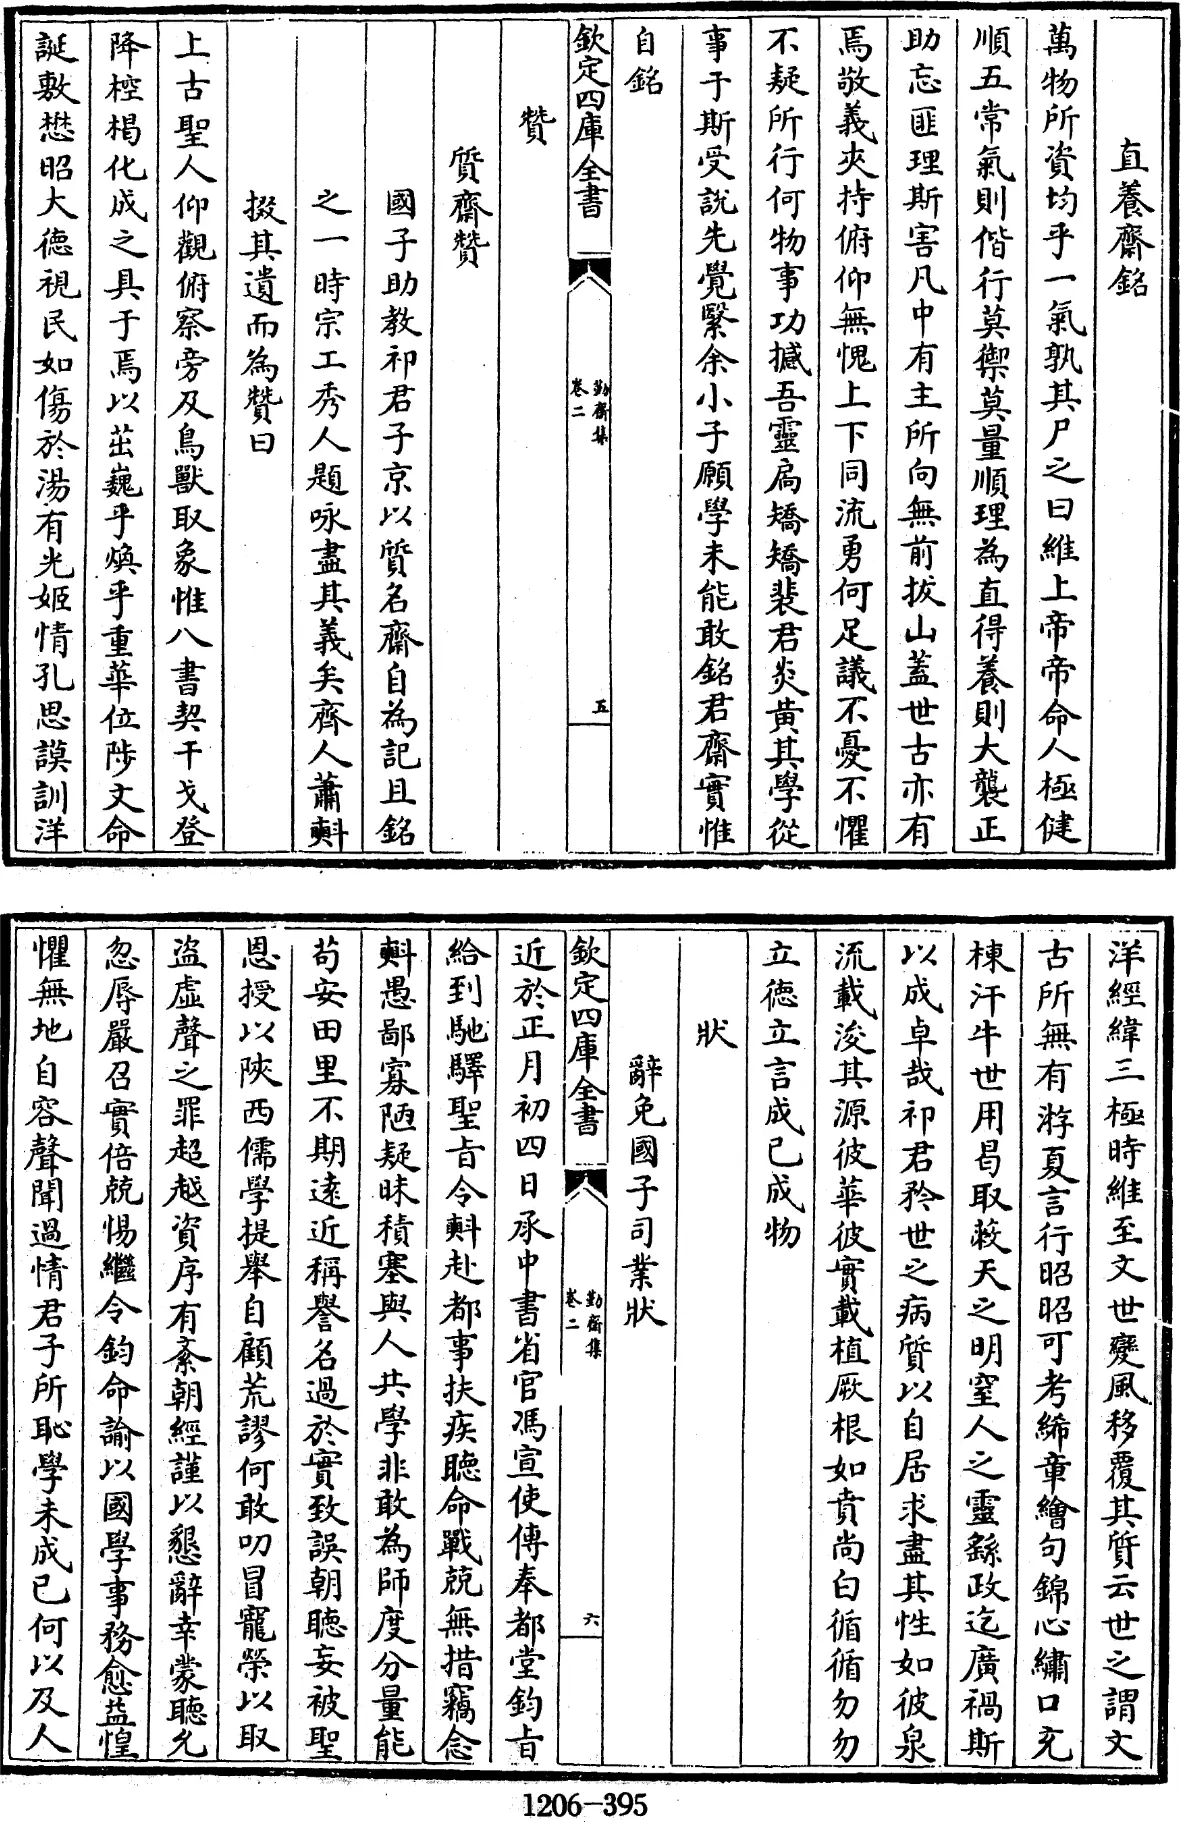 直養齋銘
萬物所資均乎一氣孰其尸之曰維上帝帝命人極健
順五常氣則偕行莫禦莫量順理為直得養則大襲正
助忘匪理斯害凡中有主所向無前拔山蓋世古亦有
焉敬義夾持俯仰無愧上下同流勇何足議不憂不懼
不疑所行何物事功撼吾靈扄矯矯裴君炎黄其學從
事于斯受説先覺緊余小子願學未能敢銘君齋實惟
自銘
欽定四庫全書
勤齋集
卷二
五
贊
質齋贊
國子助教祁君子京以質名齋自為記且銘
之一時宗工秀人題咏盡其義矣齊人蕭㪺
掇其遺而為贊曰
上古聖人仰觀俯察旁及鳥獸取象惟八書契干戈登
降椌楬化成之具于焉以茁巍乎煥乎重華位陟文命
誕敷懋昭大德視民如傷於湯有光姬情孔思謨訓洋
洋經緯三極時維至文世變風移覆其質云世之謂文
古所無有游夏言行昭昭可考絺章繪句錦心繡口充
棟汗牛世用曷取蔽天之明窒人之靈繇政迄廣禍斯
以成卓哉祁君矜世之病質以自居求盡其性如彼泉
流載浚其源彼華彼實載植厥根如賁尚白循循勿勿
立徳立言成已成物
狀
辭免國子司業狀
近於正月初四日承中書省官馮宣使傳奉都堂鈞㫖
給到馳驛聖㫖令㪺赴都事扶疾聽命戰兢無措竊念
㪺愚鄙寡陋疑昧積塞與人共學非敢為師度分量能
苟安田里不期逺近稱譽名過於實致誤朝聽妄被聖
恩授以陜西儒學提舉自顧荒謬何敢叨冒寵榮以取
盜虛聲之罪超越資序有紊朝經謹以懇辭幸蒙聽允
忽辱嚴召實倍兢惕繼令鈞命諭以國學事務愈益惶
懼無地自容聲聞過情君子所恥學未成已何以及人
欽定四庫全書
勤齋集
卷二
六
1206-395